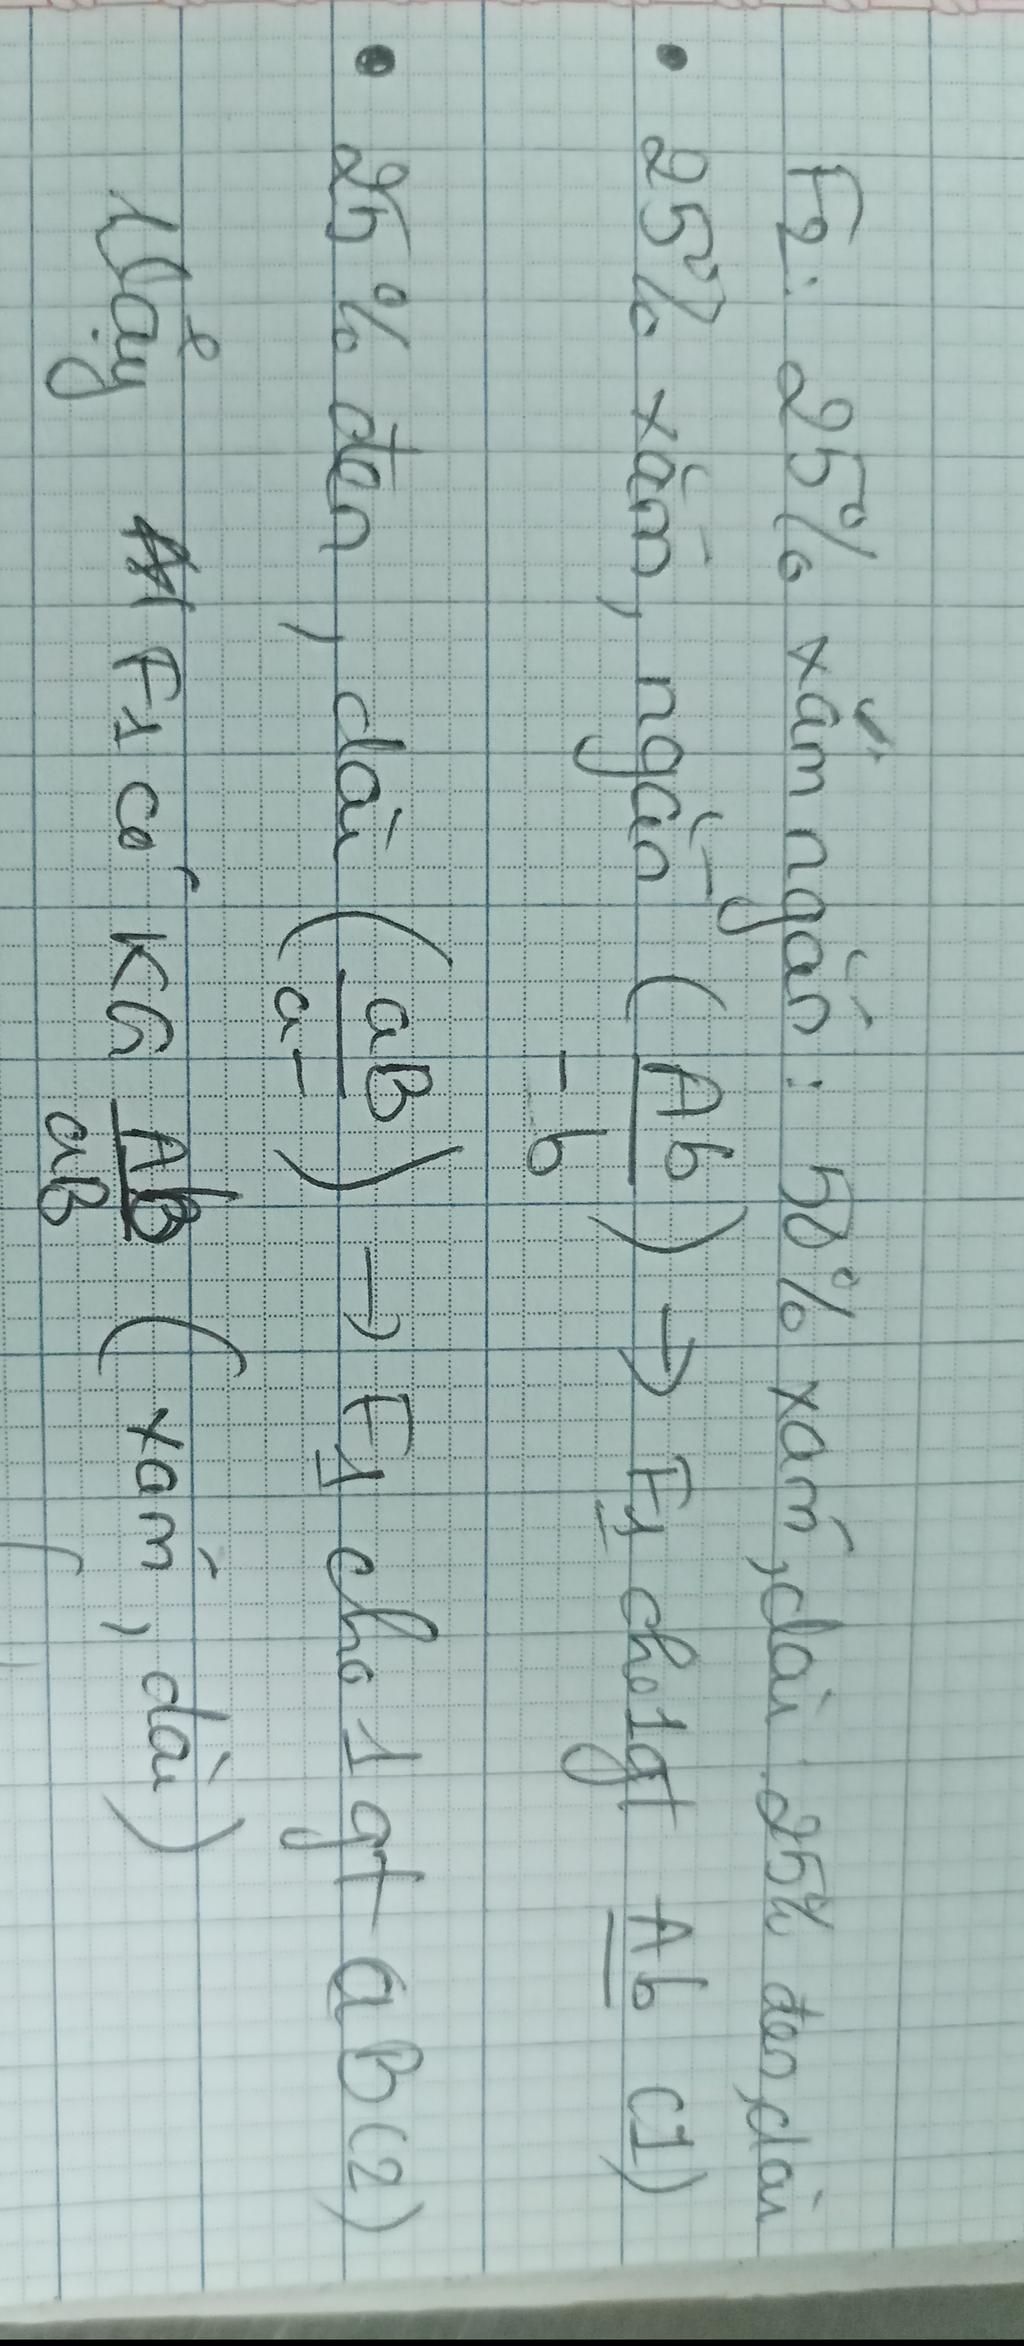 F2: 25% xám ngắn : 50% xám, dài : 25% đen, dài
• 25% xám, ngắn (Ab) → F1 cho 1gt Ab (1)
-b
• 25% đen, dài (aB/a-) → F1 cho 1 gt aB (2)
Vậy F1 có KG Ab/aB (xám, dài)